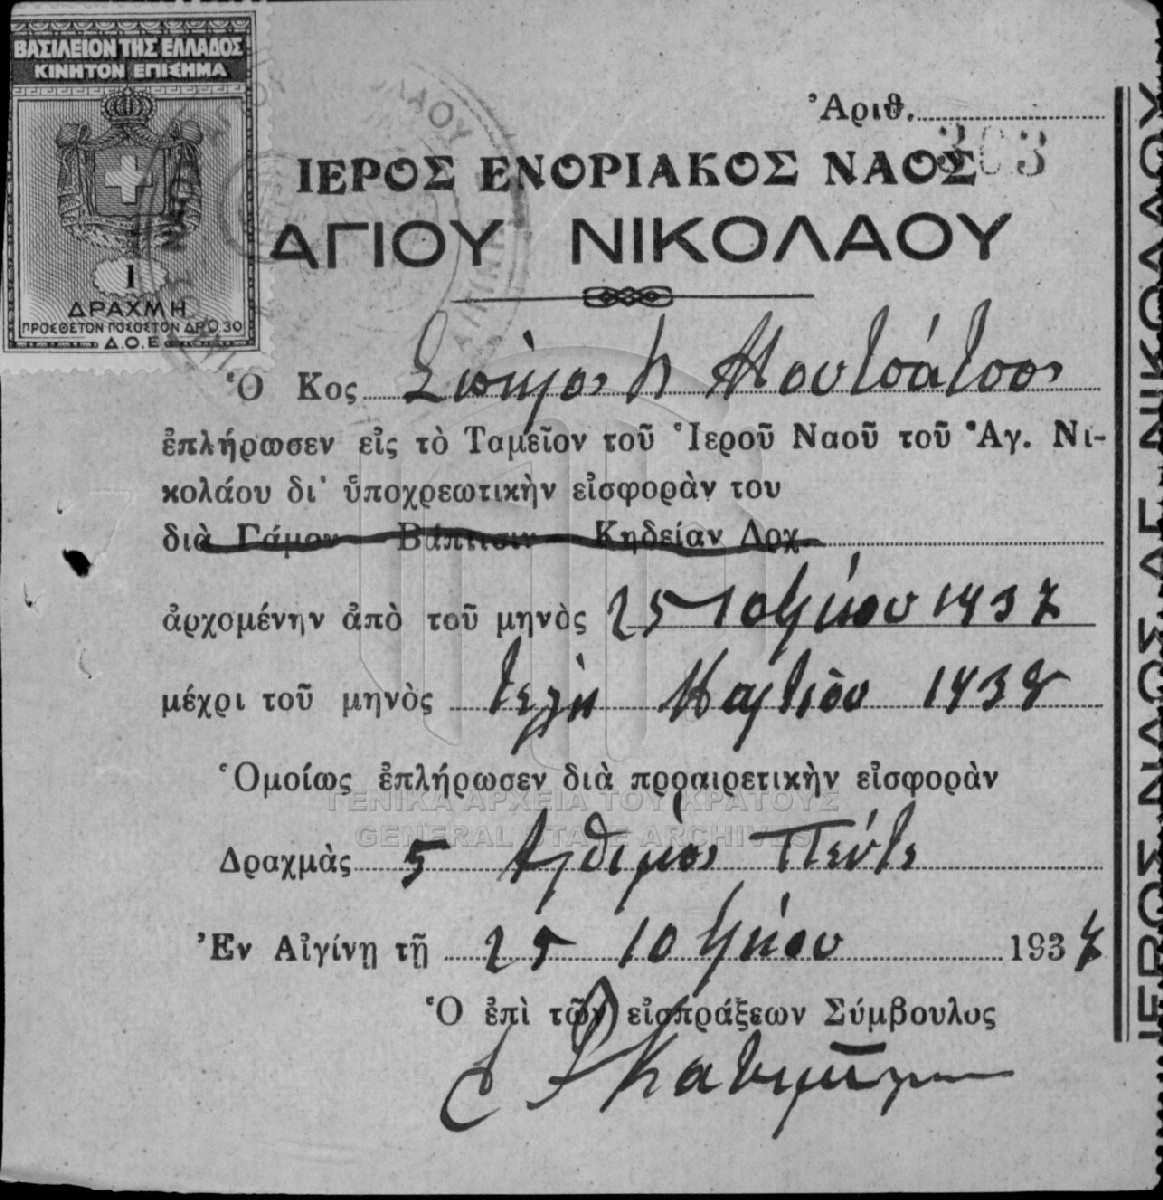 ΒΑΣΙΛΕΙΟΝ ΤΗΣ ΕΛΛΑΔΟΣ
ΚΙΝΗΤΟΝ ΕΠΙΣΗΜΑ
1
ΔΡΑΧΜΗ
ΠΡΟΣΘΕΤΟΝ ΠΟΣΟΣΤΟΝ ΔΡ 0 30
Δ.Ο.Ε
Ἀριθ.
303
ΙΕΡΟΣ ΕΝΟΡΙΑΚΟΣ ΝΑΟΣ
ΑΓΙΟΥ ΝΙΚΟΛΑΟΥ
Ὁ Κος Σπῦρος Μουτσάτσος
ἐπλήρωσεν εἰς τὸ Ταμεῖον τοῦ Ἱεροῦ Ναοῦ τοῦ Ἁγ. Νι-
κολάου δι' ὑποχρεωτικὴν εἰσφορὰν του
διὰ Γάμον Βάπτισιν Κηδείαν Δρχ
ἀρχομένην ἀπὸ τοῦ μηνὸς 25 10βρίου 1937
μέχρι τοῦ μηνὸς τέλη Μαρτίου 1938
Ὁμοίως ἐπλήρωσεν διὰ προαιρετικὴν εἰσφορὰν
ΓΕΝΙΚΑ ΑΡΧΕΙΑ ΤΟΥ ΚΡΑΤΟΥΣ
GENERAL STATE ARCHIVES
Δραχμὰς 5 Ἀριθμὸς Πέντε
Ἐν Αἰγίνῃ τῇ 25 10βρίου 1937
Ὁ ἐπὶ τῶν εἰσπράξεων Σύμβουλος
ΙΕΡΟΣ ΝΑΟΣ ΑΓ. ΝΙΚΟΛΑΟΥ